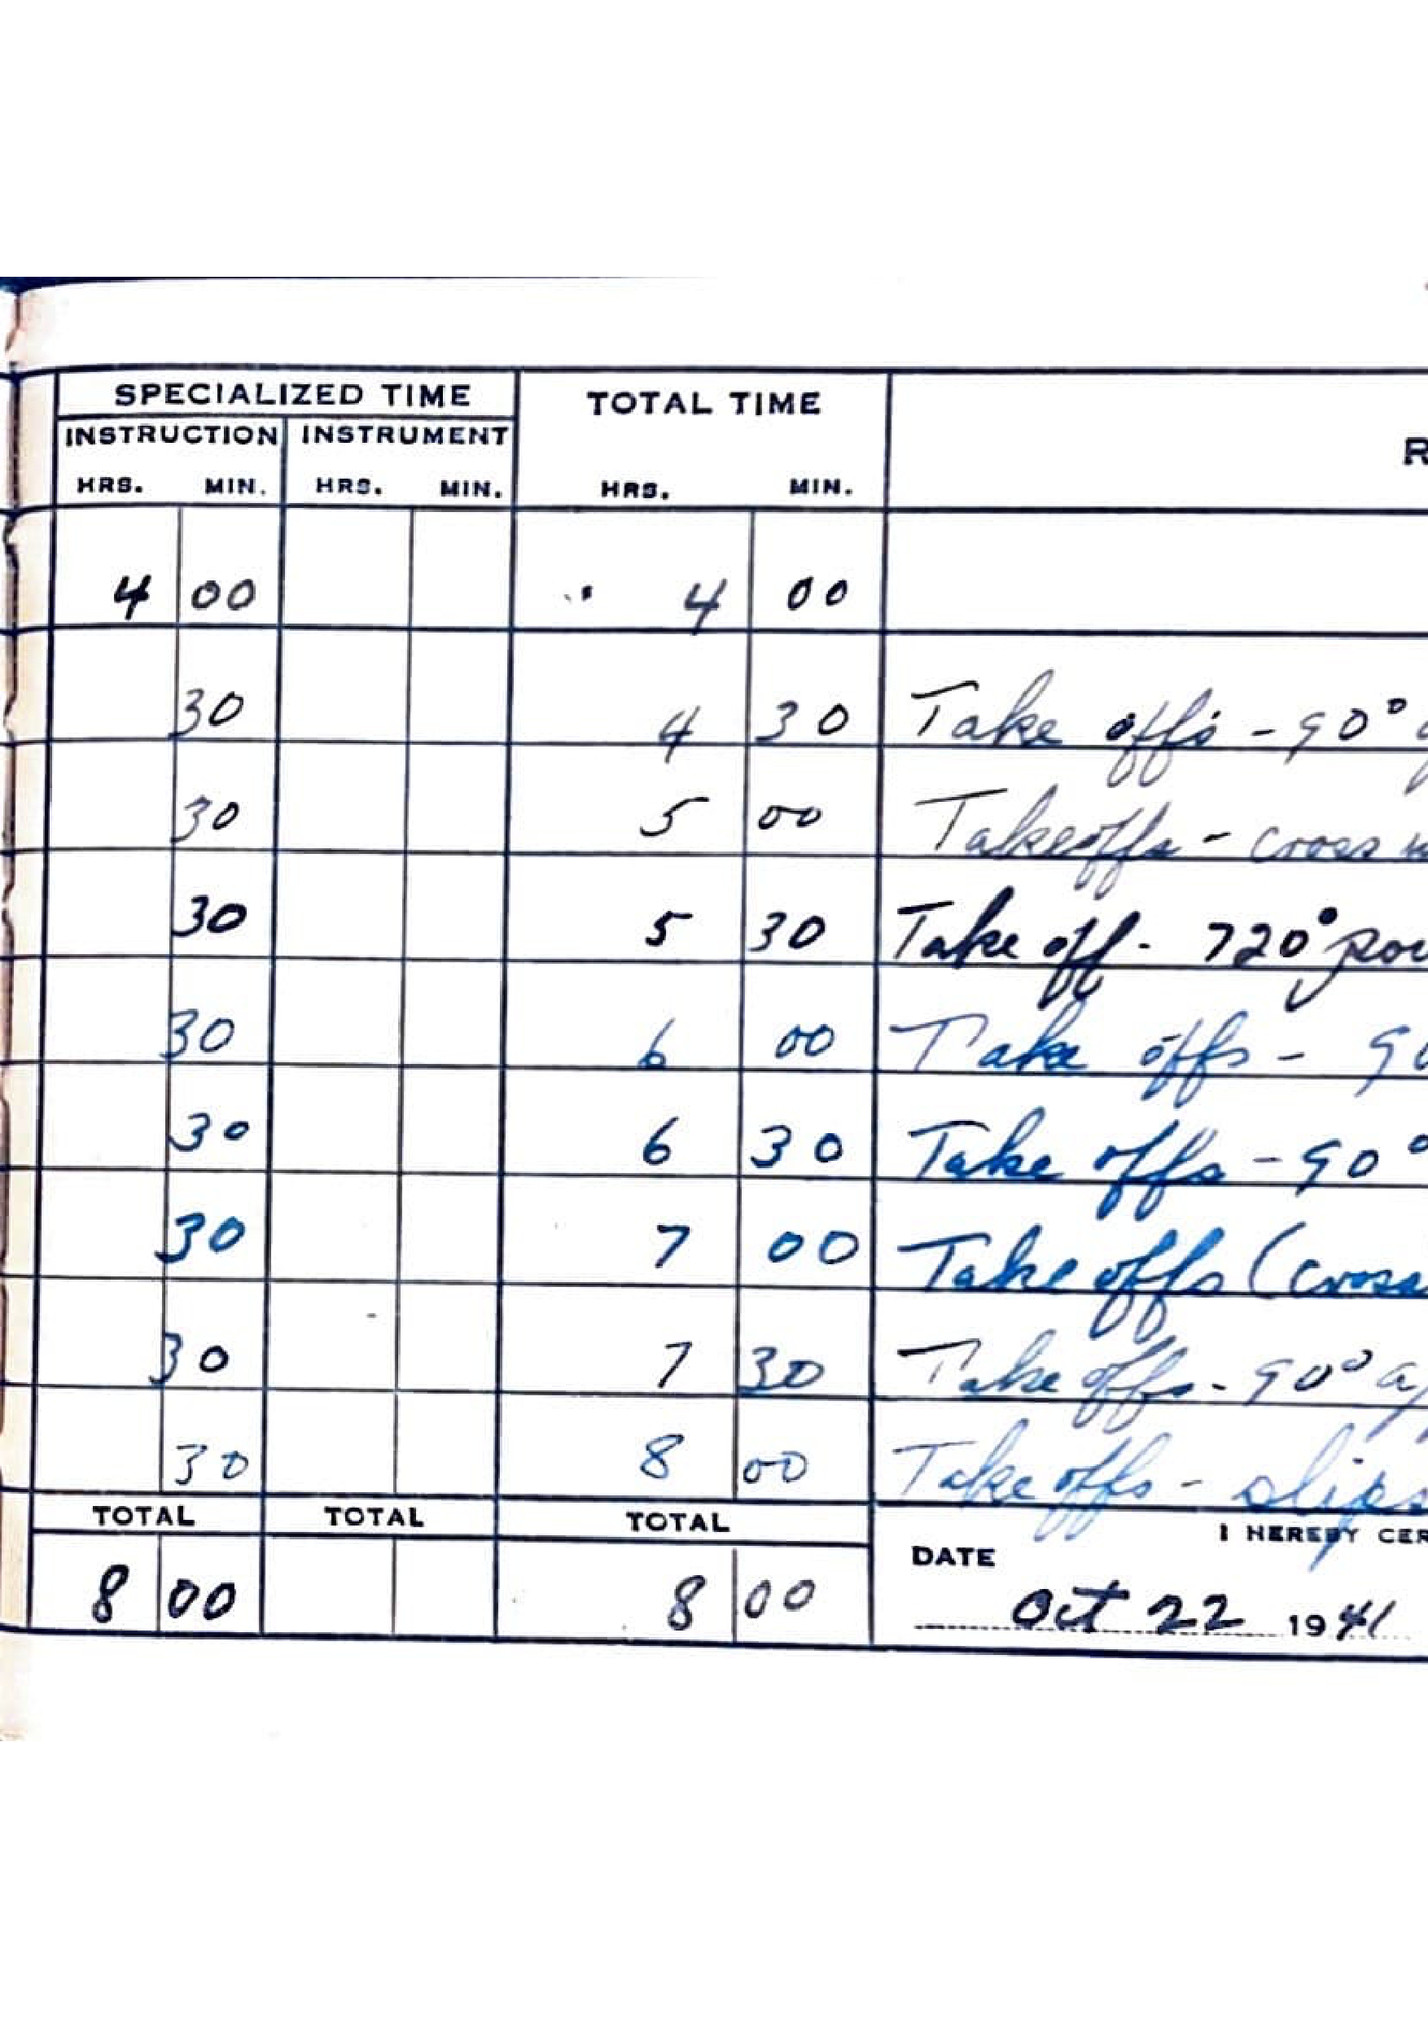 SPECIALIZED TIME TOTAL TIME
INSTRUCTION INSTRUMENT
HRS. MIN. HRS. MIN. HRS. MIN.
4 00 4 00
30 4 30 Take offs - 90°
30 5 00 Takeoffs - cross
30 5 30 Take off - 720°
30 6 00 Take offs -
30 6 30 Take offs - 90°
30 7 00 Take offs (cross
30 7 30 Take offs - 90°
30 8 00 Take offs - slips
TOTAL TOTAL TOTAL I HEREBY CER
DATE
8 00 8 00 Oct 22 1941